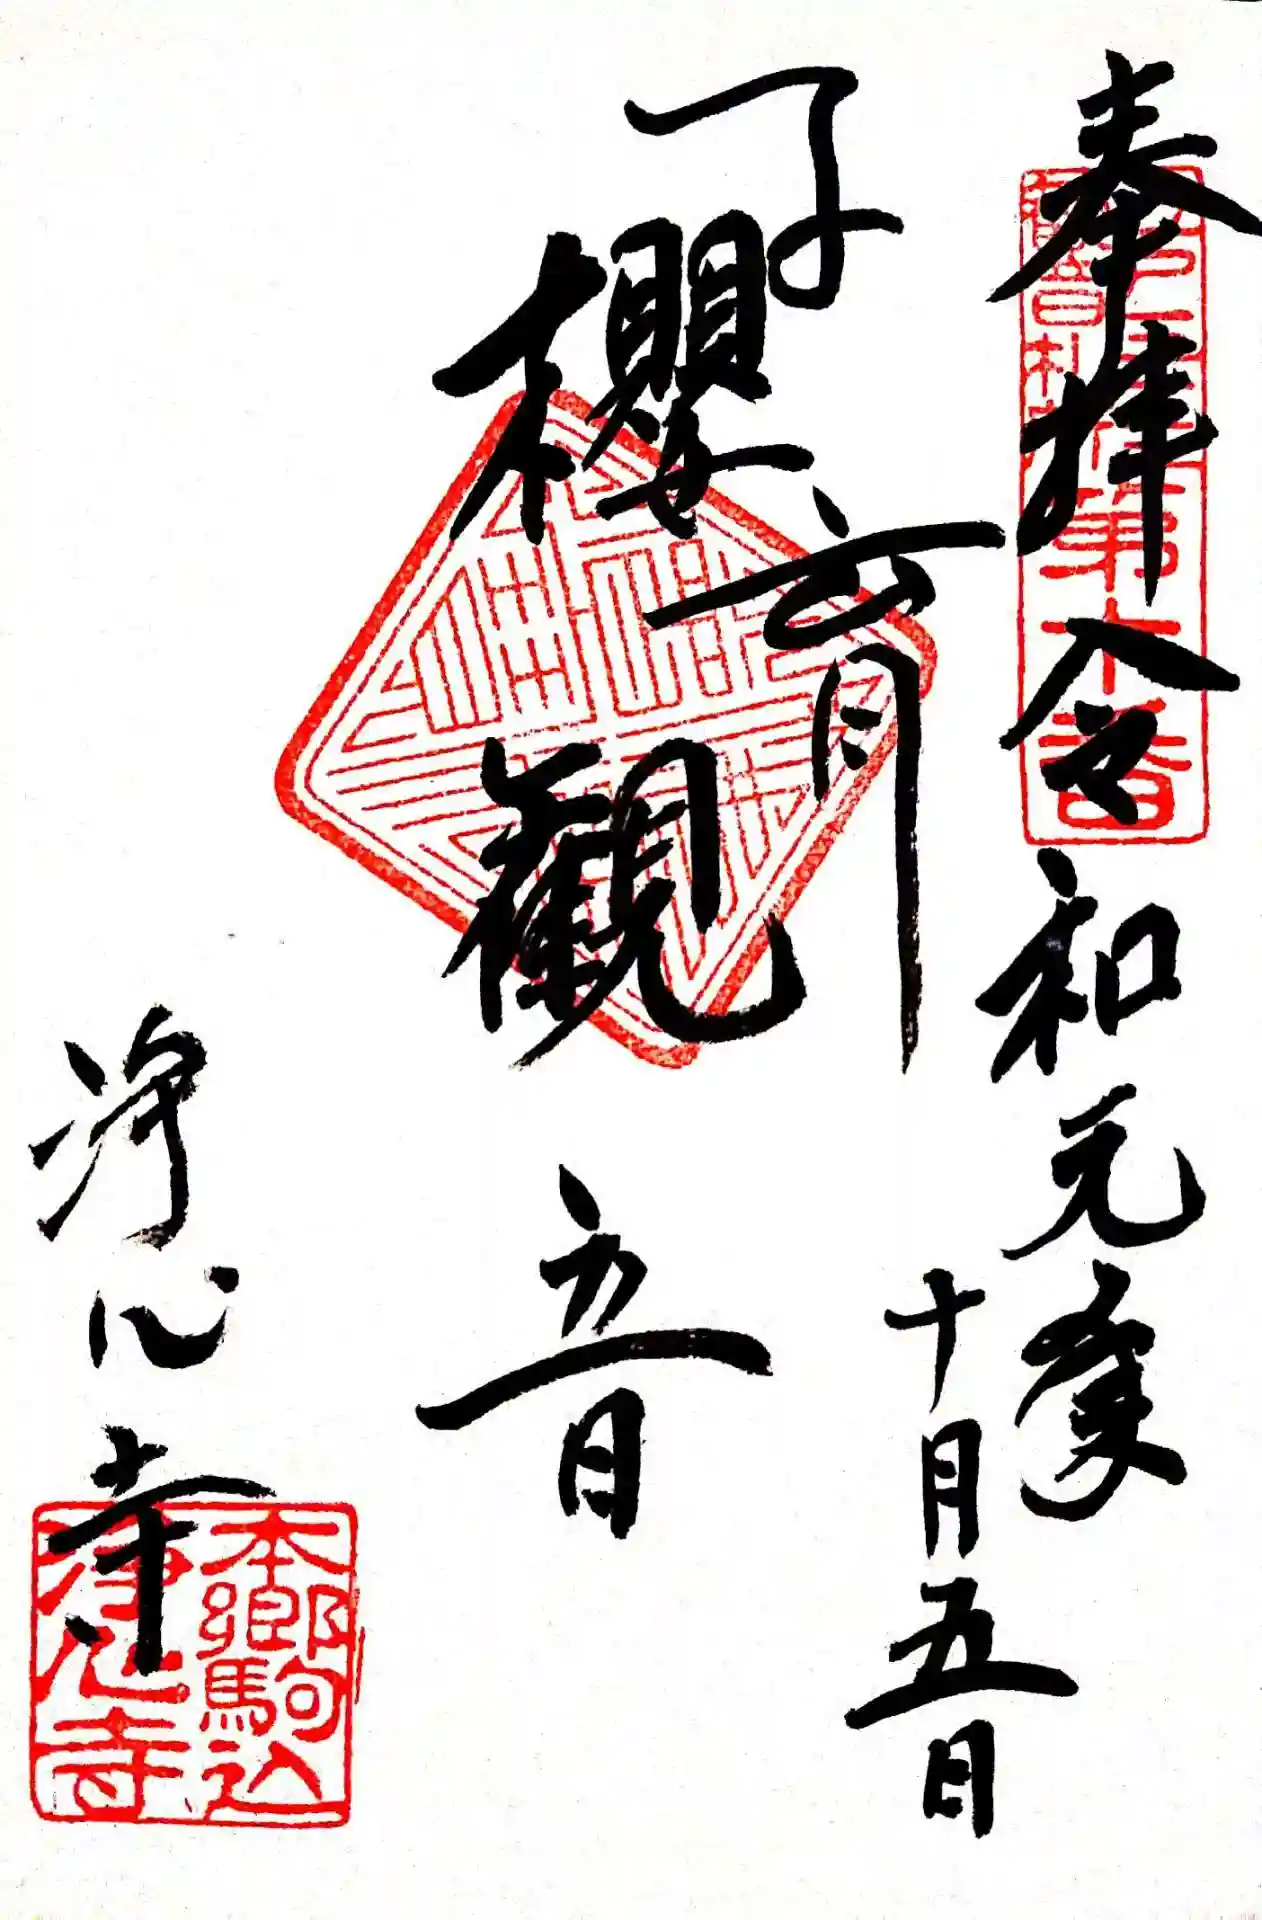 奉拝 令和元年
十月五日
第十番
子育
櫻観音
浄心寺
本郷駒込
浄心寺